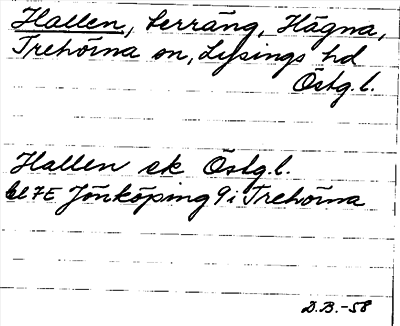 Hallen, Serräng, Hägna,
Trehörna sn, Lysings hd
Östg.l.
Hallen ek Östg.l.
bl 7E Jönköping 9i Trehörna
D.B.-58